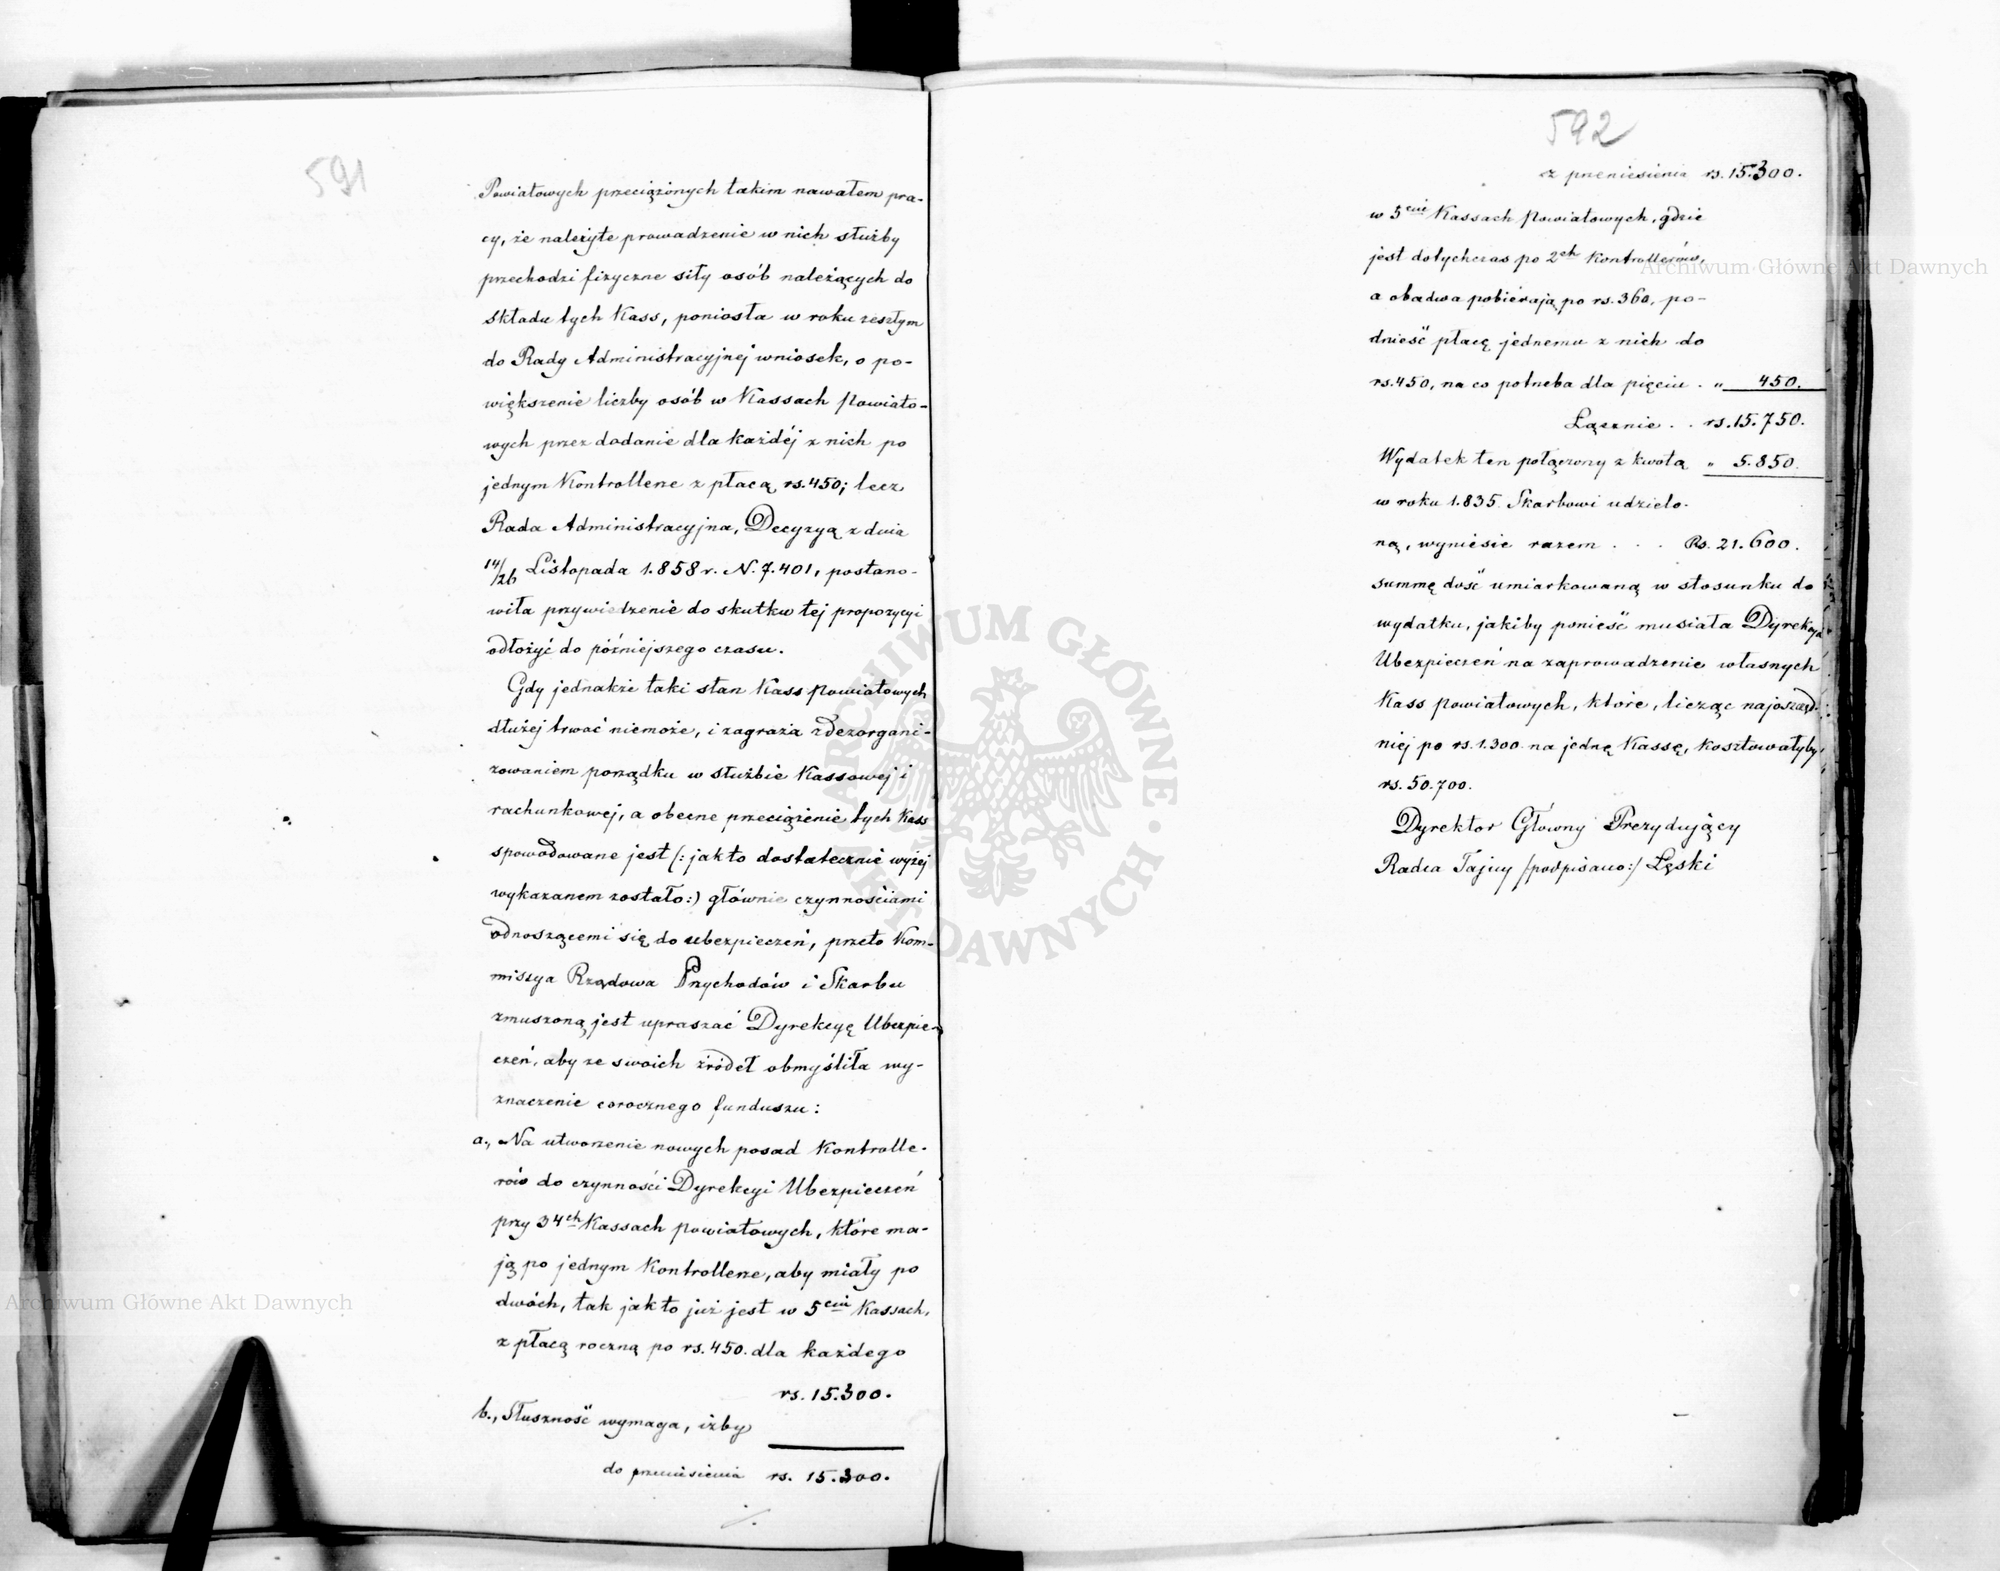 591
Powiatowych przeciążonych takim nawałem pra-
cy, że należyte prowadzenie w nich służby
przechodzi fizyczne siły osób należących do
składu tych Kass, poniosła w roku zeszłym
do Rady Administracyjnej wniosek, o po-
większenie liczby osób w Kassach Powiato-
wych przez dodanie dla każdéj z nich po
jednym Kontrollerze z płacą rs. 450; lecz
Rada Administracyjna, Decyzyą z dnia
14/26 Listopada 1.858 r. N. 7.401, postano-
wiła przywiedzenie do skutku tej propozycyi
odłożyć do późniejszego czasu.
Gdy jednakże taki stan Kass Powiatowych
dłużej trwać niemoże, i zagraża zdezorgani-
zowaniem porządku w służbie Kassowej i
rachunkowej, a obecne przeciążenie tych Kass
spowodowane jest (: jak to dostatecznie wyżej
wykazanem zostało:) głównie czynnościami
odnoszącemi się do ubezpieczeń, przeto Kom-
missya Rządowa Przychodów i Skarbu
zmuszoną jest upraszać Dyrekcyę Ubezpie-
czeń, aby ze swoich źródeł obmyśliła wy-
znaczenie corocznego funduszu:
a., Na utworzenie nowych posad Kontrolle-
rów do czynności Dyrekcyi Ubezpieczeń
przy 34ch Kassach powiatowych, które ma-
ją po jednym Kontrollerze, aby miały po
dwóch, tak jak to już jest w 5ciu Kassach,
z płacą roczną po rs. 450. dla każdego
rs. 15.300.
b., Słuszność wymaga, iżby
do przeniesienia rs. 15.300.
592
z przeniesienia rs. 15.300.
w 5ciu Kassach Powiatowych, gdzie
jest dotychczas po 2ch Kontrollerów,
a obadwa pobiérają po rs. 360, po-
dnieść płacę jednemu z nich do
rs. 450, na co potrzeba dla pięciu . „ 450.
Łącznie . . rs. 15.750.
Wydatek ten połączony z kwotą „ 5.850.
w roku 1.835. Skarbowi udzielo-
ną, wyniesie razem . . . Rs. 21.600.
summę dość umiarkowaną w stosunku do
wydatku, jakiby ponieść musiała Dyrekcya
Ubezpieczeń na zaprowadzenie własnych
Kass powiatowych, które, licząc najoszczęd-
niej po rs. 1.300 na jednę Kassę, kosztowałyby
rs. 50.700.
Dyrektor Główny Prezydujący
Radca Tajny /podpisano:/ Łęski
Archiwum Główne Akt Dawnych
Archiwum Główne Akt Dawnych
ARCHIWUM GŁÓWNE AKT DAWNYCH